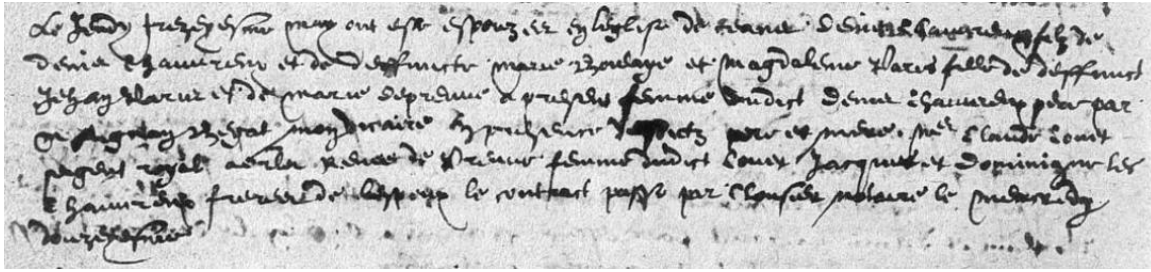 Le Jeudy trezeyesme may ont esté espouzez en leglise de ceans Denis Chauvreux filz de
Denis Chauvreux et de deffuncte Marie Boulaye et Magdaleine Paris fille de deffunct
Jehan Paris et de Marie Depreuve a present femme dudict Denis Chauvreux pere par
Me Begat mon vicaire en presence desdictz pere et mere. Me Claude Couet
sergent royal Renee de Preuve femme dudict Couet Jacques et Dominique les
Chauvreux freres de lespoux le contract passé par Clousier notaire le mercredy
douzeyesme